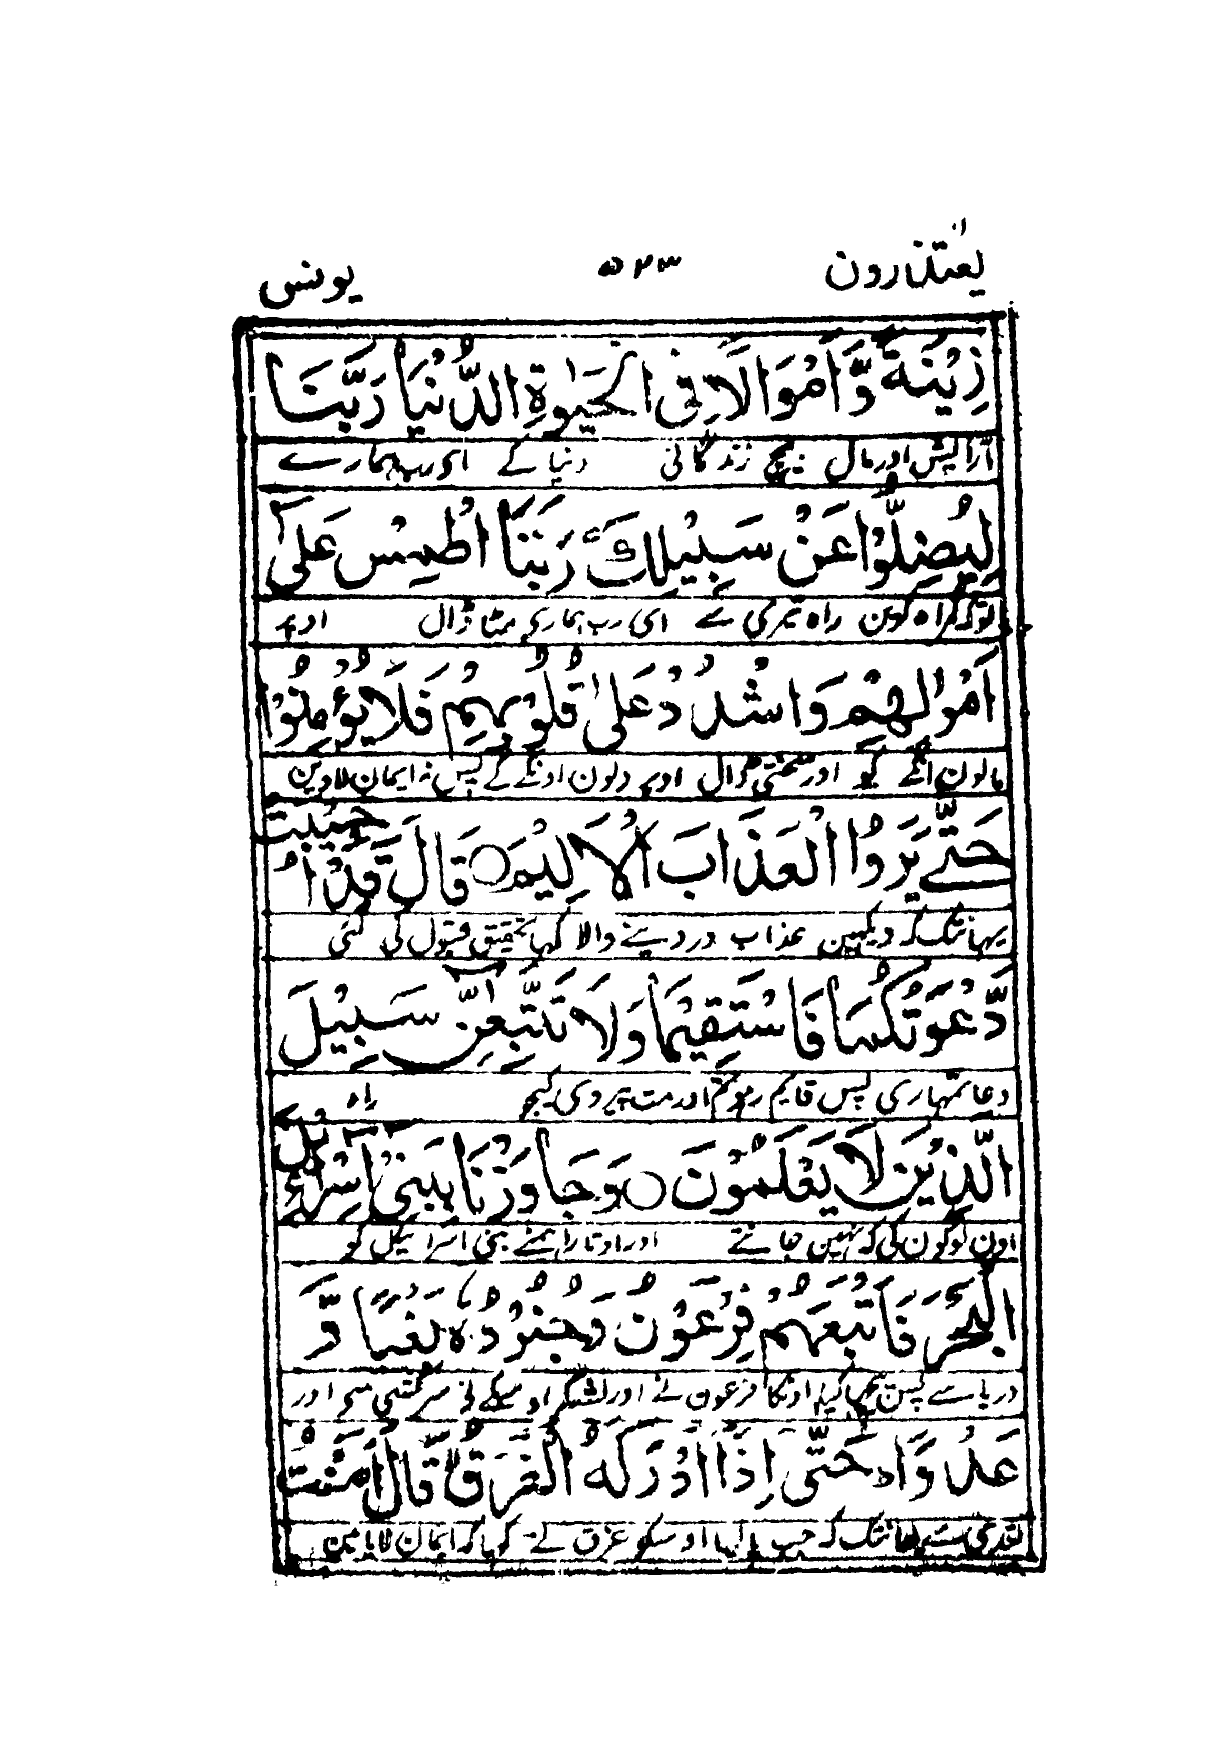 يعتذرون ۵۲۳ يونس
زِيْنَةً وَّاَمْوَالًا فِي الْحَيٰوةِ الدُّنْيَا رَبَّنَا
آرایش اور مال بیچ زندگانی دنیا کے ای رب ہمارے
لِيُضِلُّوْا عَنْ سَبِيْلِكَ رَبَّنَا اطْمِسْ عَلٰٓى
توکہ گمراہ کرین راہ تیری سے ای رب ہماری مٹا ڈال اوپر
اَمْوَالِهِمْ وَاشْدُدْ عَلٰى قُلُوْبِهِمْ فَلَا يُؤْمِنُوْا
مالون انکے کیو اور سختی ڈال اوپر دلون اونکے کے پس نہ ایمان لاوین
حَتّٰى يَرَوُا الْعَذَابَ الْاَلِيْمَ ○ قَالَ قَدْ اُجِيْبَتْ
یہانتک کہ دیکہین عذاب درد دینے والا کہا تحقیق قبول کی گئی
دَّعْوَتُكُمَا فَاسْتَقِيْمَا وَلَا تَتَّبِعٰٓنِّ سَبِيْلَ
دعا تمہاری پس قایم رہو تم اور مت پیروی کیجو راہ
الَّذِيْنَ لَا يَعْلَمُوْنَ ○ وَجَاوَزْنَا بِبَنِيْ اِسْرَآءِيْلَ
اون لوگون کی کہ نہین جانتے اور اوتارا ہمنے بنی اسرائیل کو
الْبَحْرَ فَاَتْبَعَهُمْ فِرْعَوْنُ وَجُنُوْدُهٗ بَغْيًا وَّ
دریا سے پس پیچہا کیا اونکا فرعون نے اور لشکر اوسکے نی سرکشی سے اور
عَدْوًا حَتّٰٓى اِذَآ اَدْرَكَهُ الْغَرَقُ قَالَ اٰمَنْتُ
تعدی سے یہانتک کہ جب پالیا اوسکو غرق نے کہا کہ ایمان لایا مین